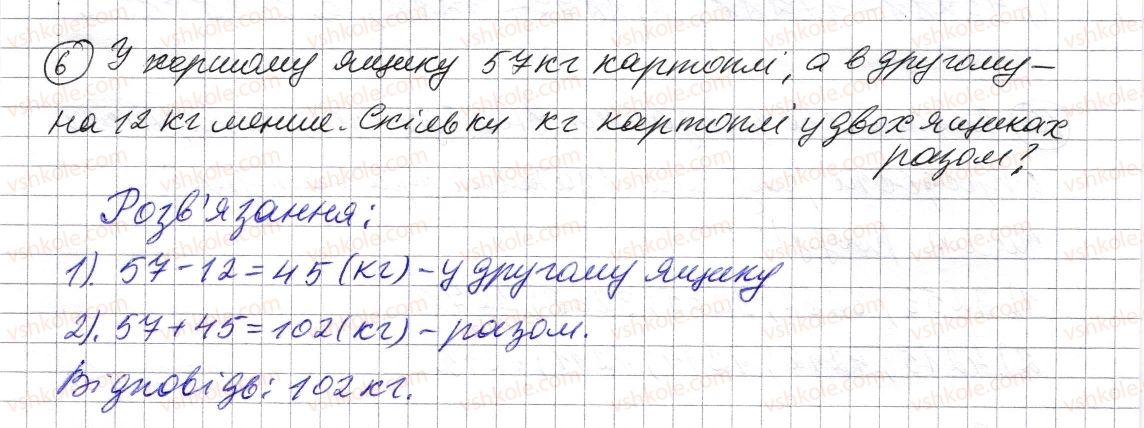 6 У першому ящику 57 кг картоплі, а в другому –
на 12 кг менше. Скільки кг картоплі у двох ящиках
разом?
Розв'язання:
1). 57 - 12 = 45 (кг) – у другому ящику
2). 57 + 45 = 102 (кг) – разом.
Відповідь: 102 кг.